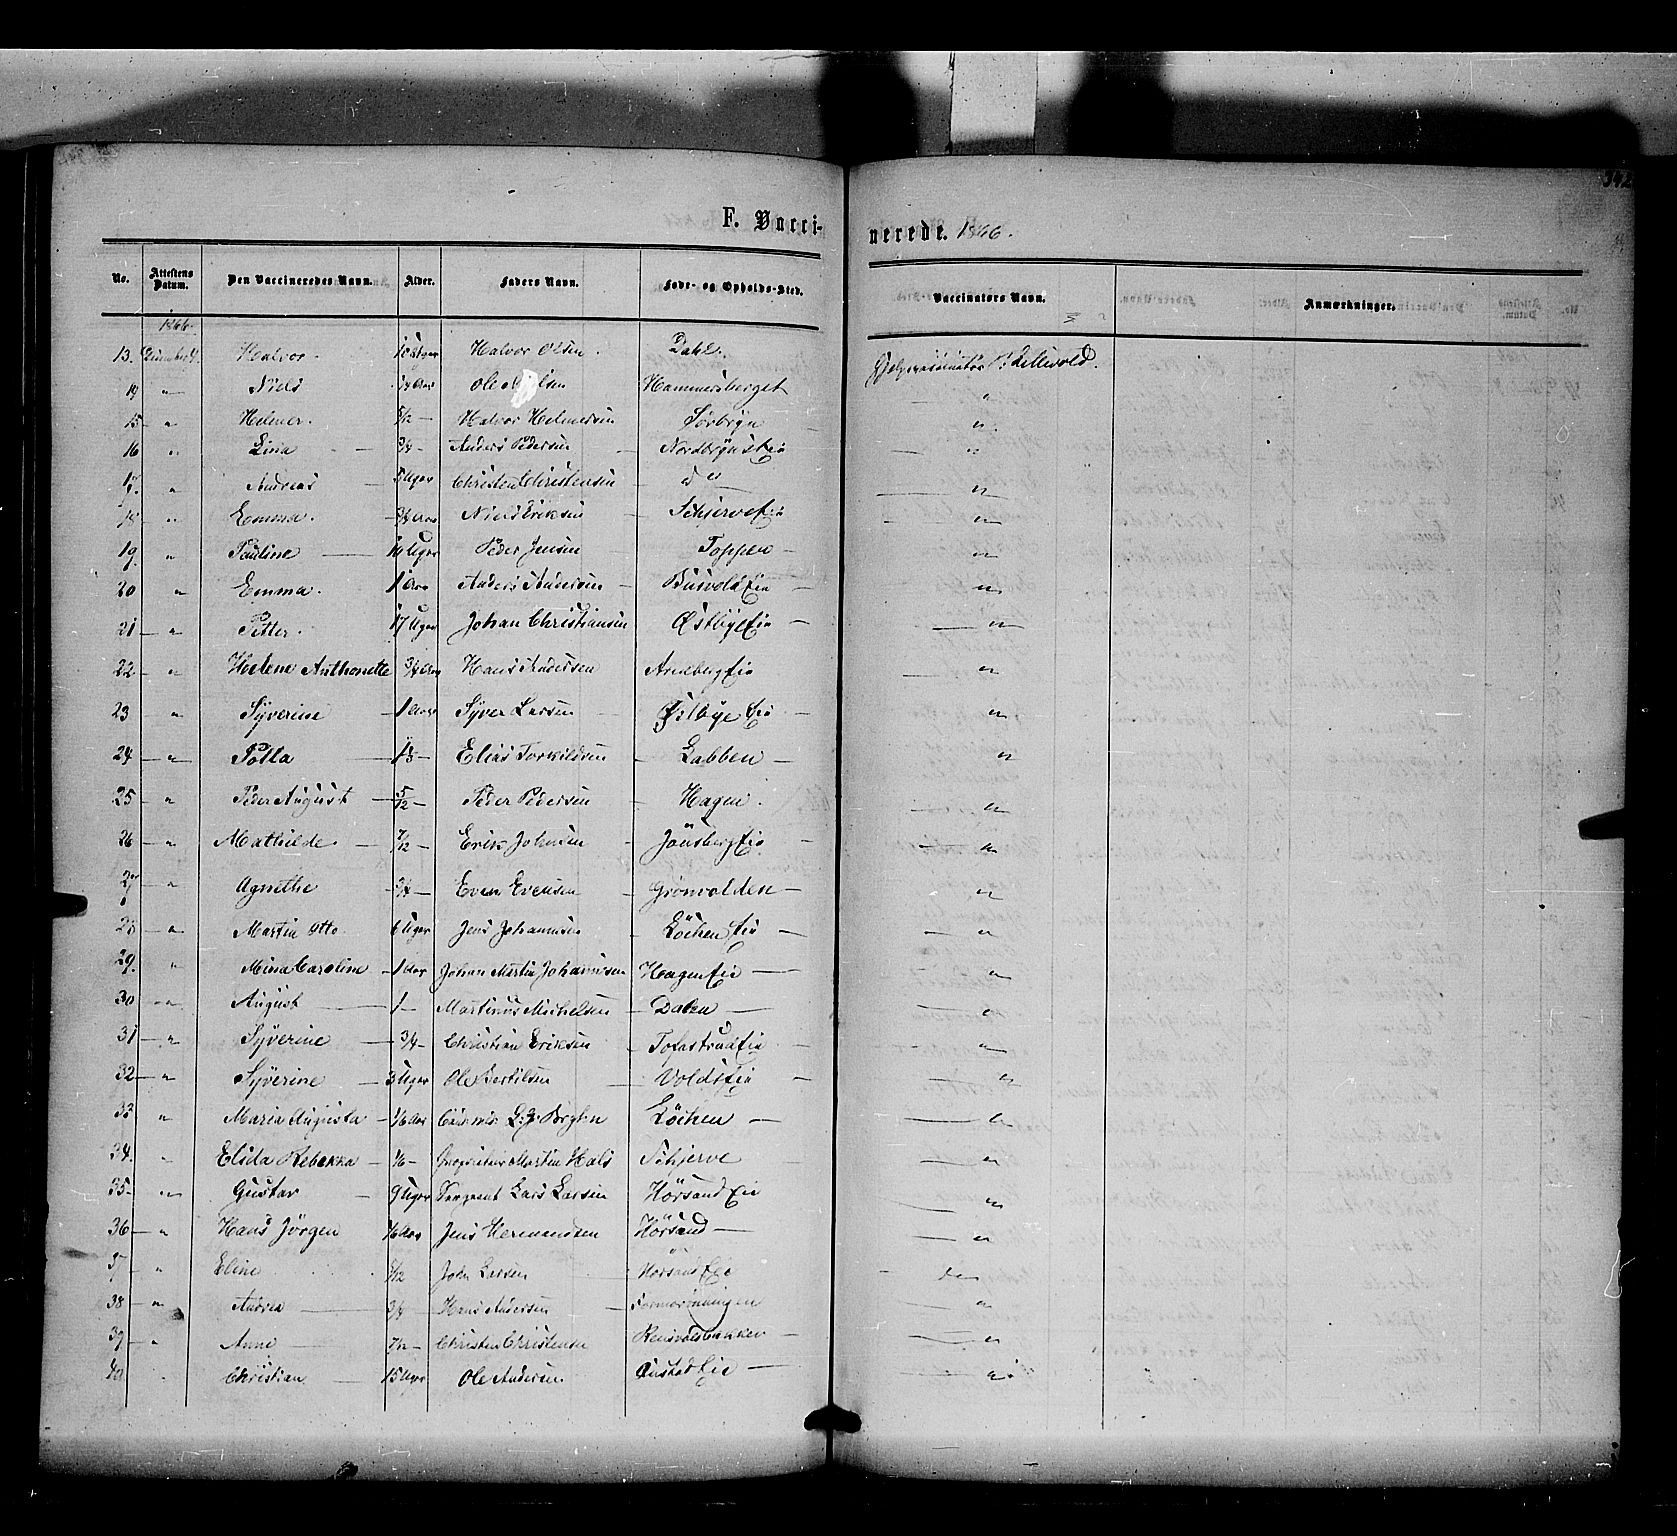 342
F. Vaccinerede. 1866.
No. Attestens Datum. Den Vaccineredes Navn. Alder. Faders Navn. Føde- og Opholds-Sted. Vaccinators Navn. Anmærkninger.
1866.
13. Halvor. Uger Halvor Olsen. Dahl.
14 " Niels 3/4 Aar Ole Nielsen Hammersberget "
15 - " Helmer. 5/12 - Halvor Helmersen Sørbryn "
16 " Lina - 3/4 - Anders Pedersen - Nordbryns Eie "
17. " Andreas - Uger Christen Christensen do "
18 " Emma. - 3/4 Aar Niels Eriksen - Schjerve Eie "
19. " Pauline - Uger Peder Jensen Toppen - "
20 " Emma. 1 Aar Anders Andersen - Busvold Eie "
21 - " Petter. 17 Uger Johan Christiansen Østbye Eie - "
22 - " Helene Anthonette 3/4 Aar Hans Andersen Arneberg Eie "
23 " Syverine - 1 Aar Syver Larsen - Østbye Eie - "
24 - " - Elias Torkildsen - Labben - "
25 " Peder August - 5/12 - Peder Pedersen - Hagen. "
26 - " Mathilde - 7/12 - Erik Johnsen - Jønsberg Eie "
27 - " Agnethe - 3/4 - Even Evensen - Grønvolden - "
28 - " Martin Otto - 6 Uger Jens Johannesen - Løchen Eie - "
29. " Mina Caroline - 1 Aar Johan Martin Johannesen Hagen Eie - "
30 - " August - 1 - Martinus Michelsen - Dalen - "
31 - " Syverine - 3/4 - Christian Eriksen - Tofastrud Eie - "
32 - " Syverine - Uger Ole Bertilsen - Volds Eie - "
33 " Maria Augusta - 1/6 Aar Løchen - "
34. " Elida Rebekka - 1/6 - Proprietær Martin Hals Schjerve - "
35 - " Gustav - 9 Uger Sergeant Lars Larsen Hørsand Eie "
36 - " Hans Jørgen 1/6 Aar Jens Hermandsen Hørsand - "
37 - " Eline 5/12 John Larsen - Hørsand Eie "
38 - " Andrea - 3/4 - Hans Andersen - "
39 - " Anne - 7/12 - Christen Christensen "
40 Christian - 15 Uger Ole Andersen Eie - "